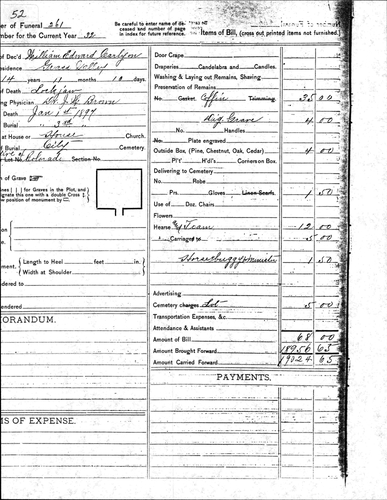 52
er of Funeral 261
mber for the Current Year 32
Be careful to enter name of de-
ceased and number of page
in index for future reference.
Items of Bill, (cross out printed items not furnished.)
of Dec'd William Edward Carlson
esidence Grace
14 years 11 months 10 days
of Death Lockjaw
ng Physician Dr J. W. Brown
Death Jan 1st 1897
Burial
at House or House Church.
f Burial City Cemetery.
Colorado
Lot No. Section No.
s of Grave
nes ( | ) for Graves in the Plot, and
signate this one with a double Cross
position of monument by
Length to Heel feet in.
Width at Shoulder
ment,
ered to
endered
MORANDUM.
MS OF EXPENSE.
Door Crape
Draperies Candelabra and Candles
Washing & Laying out Remains, Shaving
Preservation of Remains
No. Casket Coffin Trimming. 35 00
Dig Grave 4 00
No. Handles
Plate engraved
Outside Box (Pine, Chestnut, Oak, Cedar) 4 00
Pl't H'dl's Corners on Box.
Delivering to Cemetery
No. Robe
Prs. Gloves Linen Scarfs 1 50
Use of Doz. Chairs
Flowers
Hearse & Team 12 00
" Carriages to 5 00
Horse buggy Minister 1 50
Advertising
Cemetery charges Lot 5 00
Transportation Expenses, &c.
Attendance & Assistants
Amount of Bill 68 00
Amount Brought Forward 18956 65
Amount Carried Forward 19024 65
PAYMENTS.